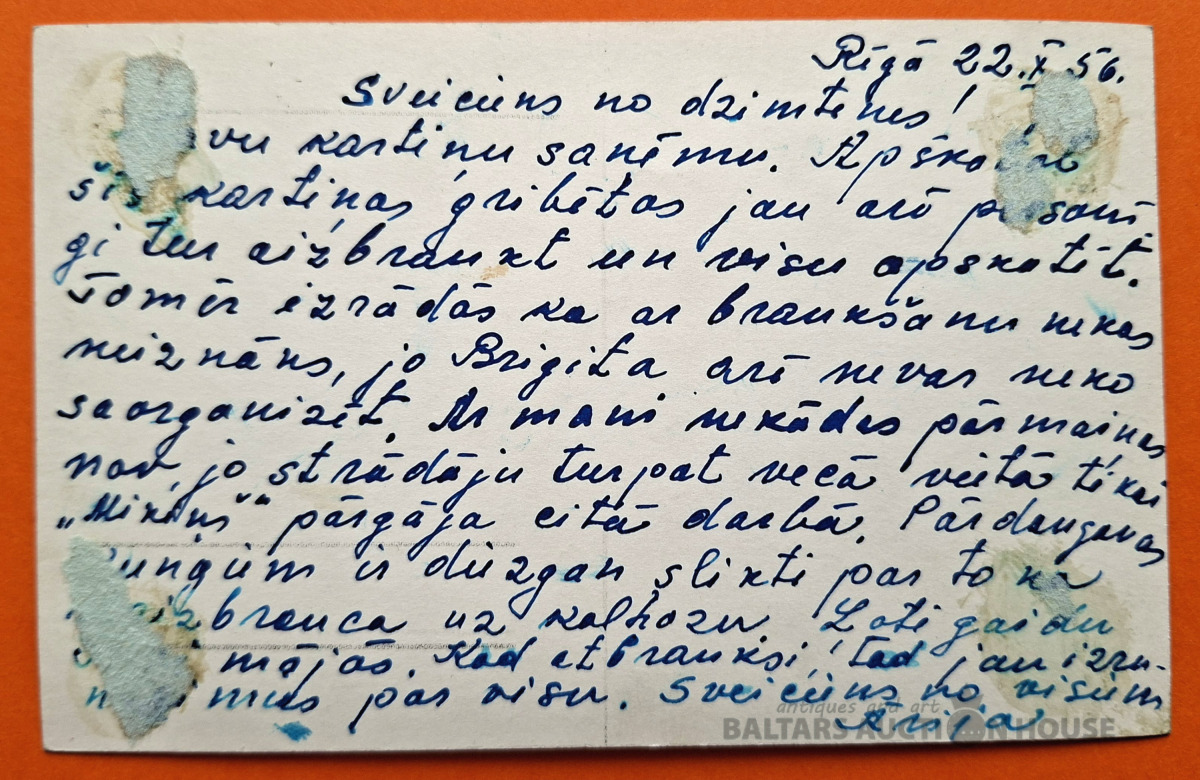 Rīgā 22.X 56.
Sveiciens no dzimtenes!
kartiņu saņēmu.
kartiņas gribētos jau arī
gi tur aizbraukt un visu apskatīt.
Tomēr izrādās ka ar braukšanu nekas
neiznāks, jo Brigita arī nevar neko
saorganizēt. Ar mani nekādas pārmaiņas
nav, jo strādāju turpat vecā vietā tikai
pārgāja citā darbā. Pārdaugavas
ir diezgan slikti par to ka
uz kolhozu. Ļoti gaidu
mājās. Kad atbrauksi, tad jau izru-
par visu. Sveiciens no visiem
Ārija
antiques and art
BALTARS AUCTION HOUSE